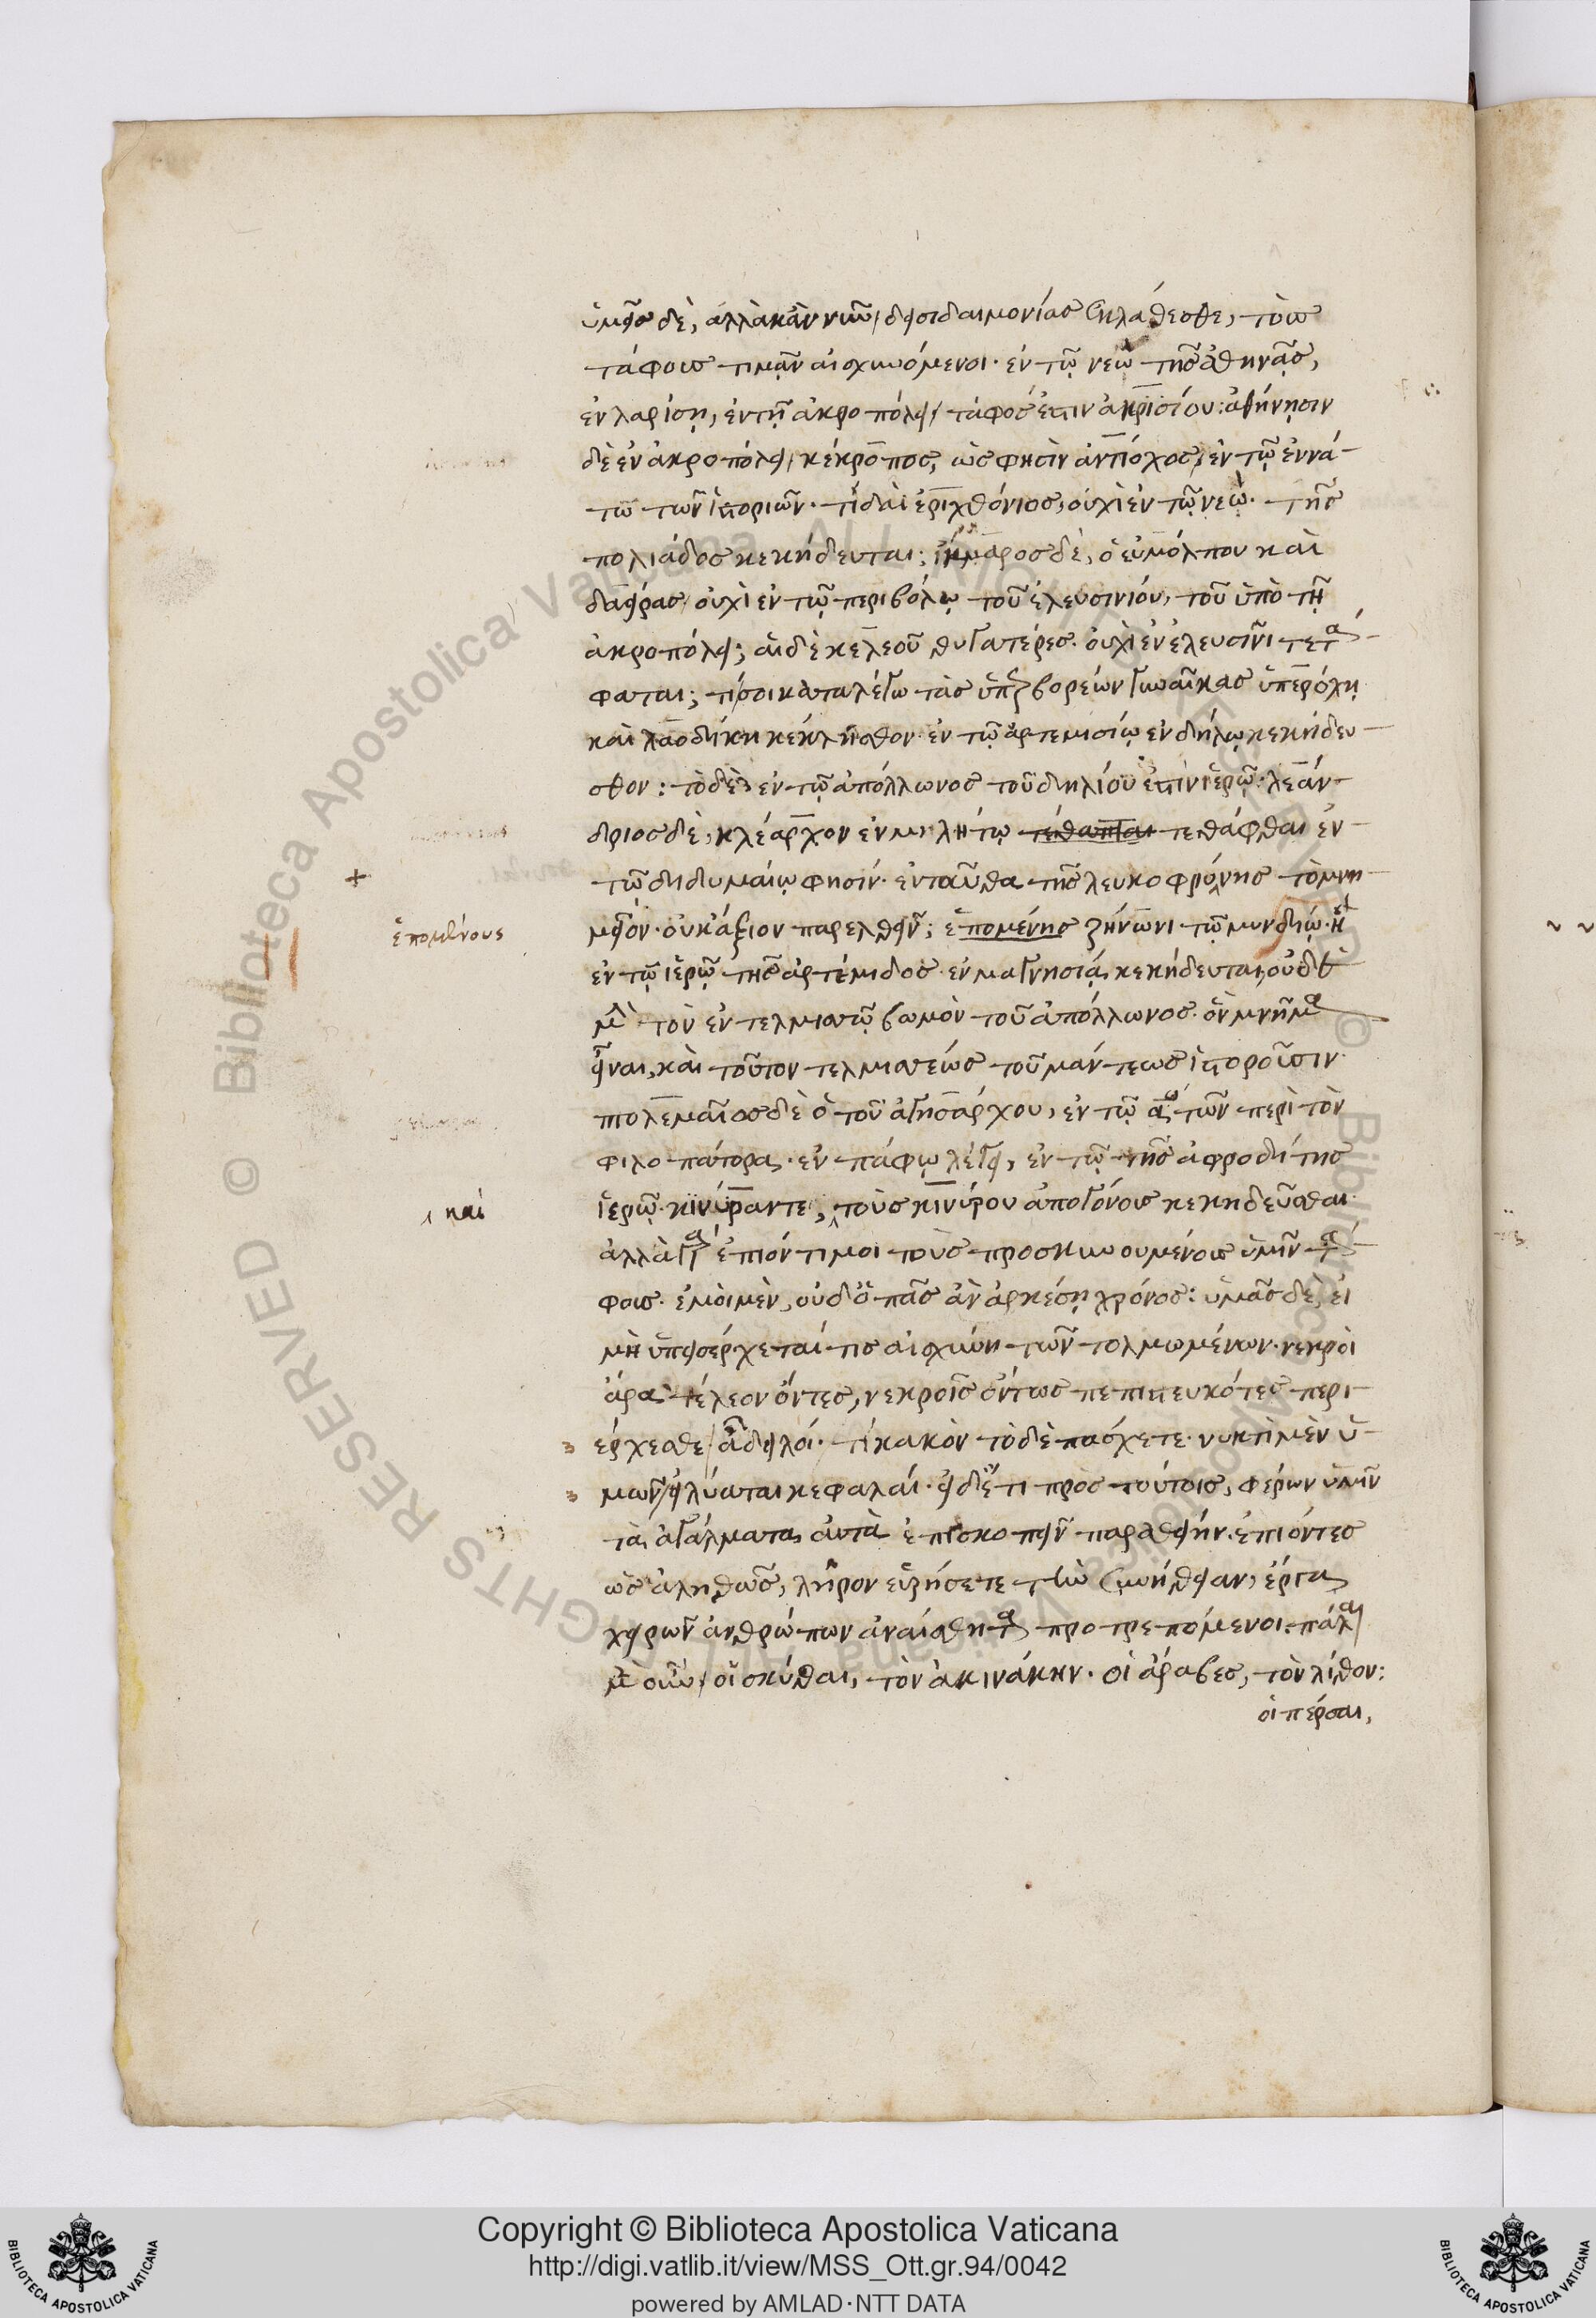 ὑμεῖς δὲ, ἀλλὰ κἂν νῦν δεισιδαιμονίας ἐκλάθεσθε, τοὺς
τάφους τιμᾶν αἰσχυνόμενοι. ἐν τῷ νεῷ τῆς ἀθηνᾶς,
ἐν λαρίσῃ, ἐν τῇ ἀκροπόλει, τάφος ἐστιν ἀκρισίου: ἀθήνησιν
δὲ ἐν ἀκροπόλει, κέκροπος, ὡς φησὶν ἀντίοχος, ἐν τῷ ἐννά-
τῳ τῶν ἱστοριῶν. τί δαὶ ἐριχθόνιος, οὐχὶ ἐν τῷ νεῷ. τῆς
πολιάδος κεκήδευται; ἵμμαρος δὲ, ὁ εὐμόλπου καὶ
δαείρας, οὐχὶ ἐν τῷ περιβόλῳ τοῦ ἐλευσινίου, τοῦ ὑπὸ τῇ
ἀκροπόλει; αἱ δὲ κελεοῦ θυγατέρες. οὐχὶ ἐν ἐλευσῖνι τετά-
φαται; τί σοι καταλέγω τὰς ὑπερβορείων γυναῖκας ὑπερόχη
καὶ λαοδίκη κέκλησθον. ἐν τῷ ἀρτεμισίῳ ἐν δήλῳ κεκήδευ-
σθον: τὸ δὲ ἐν τῷ ἀπόλλωνος τοῦ δηλίου ἐστὶν ἱερῷ. λεάν-
δριος δὲ, κλέαρχον ἐν μιλήτῳ τέθαπται τεθάφθαι ἐν
τῷ διδυμαίῳ φησίν. ἐνταῦθα τῆς λευκοφρόνης τὸ μνη-
μεῖον. οὐκ ἄξιον παρελθεῖν; ἑπομένης ζήνωνι τῷ μυνδίῳ. ἣ
ἐν τῷ ἱερῷ τῆς ἀρτέμιδος. ἐν μαγνησίᾳ κεκήδευται, οὐδὲ
μὴν τὸν ἐν τελμισσῷ βωμὸν τοῦ ἀπόλλωνος. ὃν μνῆμα
εἶναι, καὶ τοῦτον τελμισσέως τοῦ μάντεως ἱστοροῦσιν.
πολεμαῖος δὲ ὁ τοῦ ἀγησάρχου, ἐν τῷ α τῶν περὶ τὸν
φιλοπάτορα. ἐν πάφῳ λέγει, ἐν τῷ τῆς ἀφροδίτης
ἱερῷ. κινύραν τε, τοὺς κινύρου ἀπογόνους κεκηδεῦσθαι.
ἀλλὰ γὰρ ἐπιόντι μοι τοὺς προσκυνουμένους ὑμῖν τά-
φους. ἐμοὶ μὲν, οὐδ' ὁ πᾶς ἂν ἀρκέσῃ χρόνος: ὑμᾶς δὲ, εἰ
μὴ ὑπεισέρχεταί τις αἰσχύνη τῶν τολμωμένων. νεκροὶ
ἄρα τέλεον ὄντες, νεκροῖς ὄντως πεπιστευκότες περι-
έρχεσθε. ἆ δειλοί. τί κακὸν τὸ δὲ πάσχετε. νυκτὶ μὲν ὑ-
μῶν εἰλύαται κεφαλαί. εἰ δ' ἔτι πρὸς τούτοις, φέρων ὑμῖν
τὰ ἀγάλματα αὐτὰ ἐπισκοπεῖν παραθείην. ἐπιόντες
ὡς ἀληθῶς, λῆρον εὑρήσετε τὴν συνήθειαν, ἔργα
χειρῶν ἀνθρώπων ἀναίσθητα προτρεπόμενοι. πάλαι
μὲν οὖν οἱ σκύθαι, τὸν ἀκινάκην. οἱ ἄραβες, τὸν λίθον:
οἱ πέρσαι,
ἑπομένους
καὶ
Copyright © Biblioteca Apostolica Vaticana
http://digi.vatlib.it/view/MSS_Ott.gr.94/0042
powered by AMLAD·NTT DATA
BIBLIOTECA APOSTOLICA VATICANA
BIBLIOTECA APOSTOLICA VATICANA